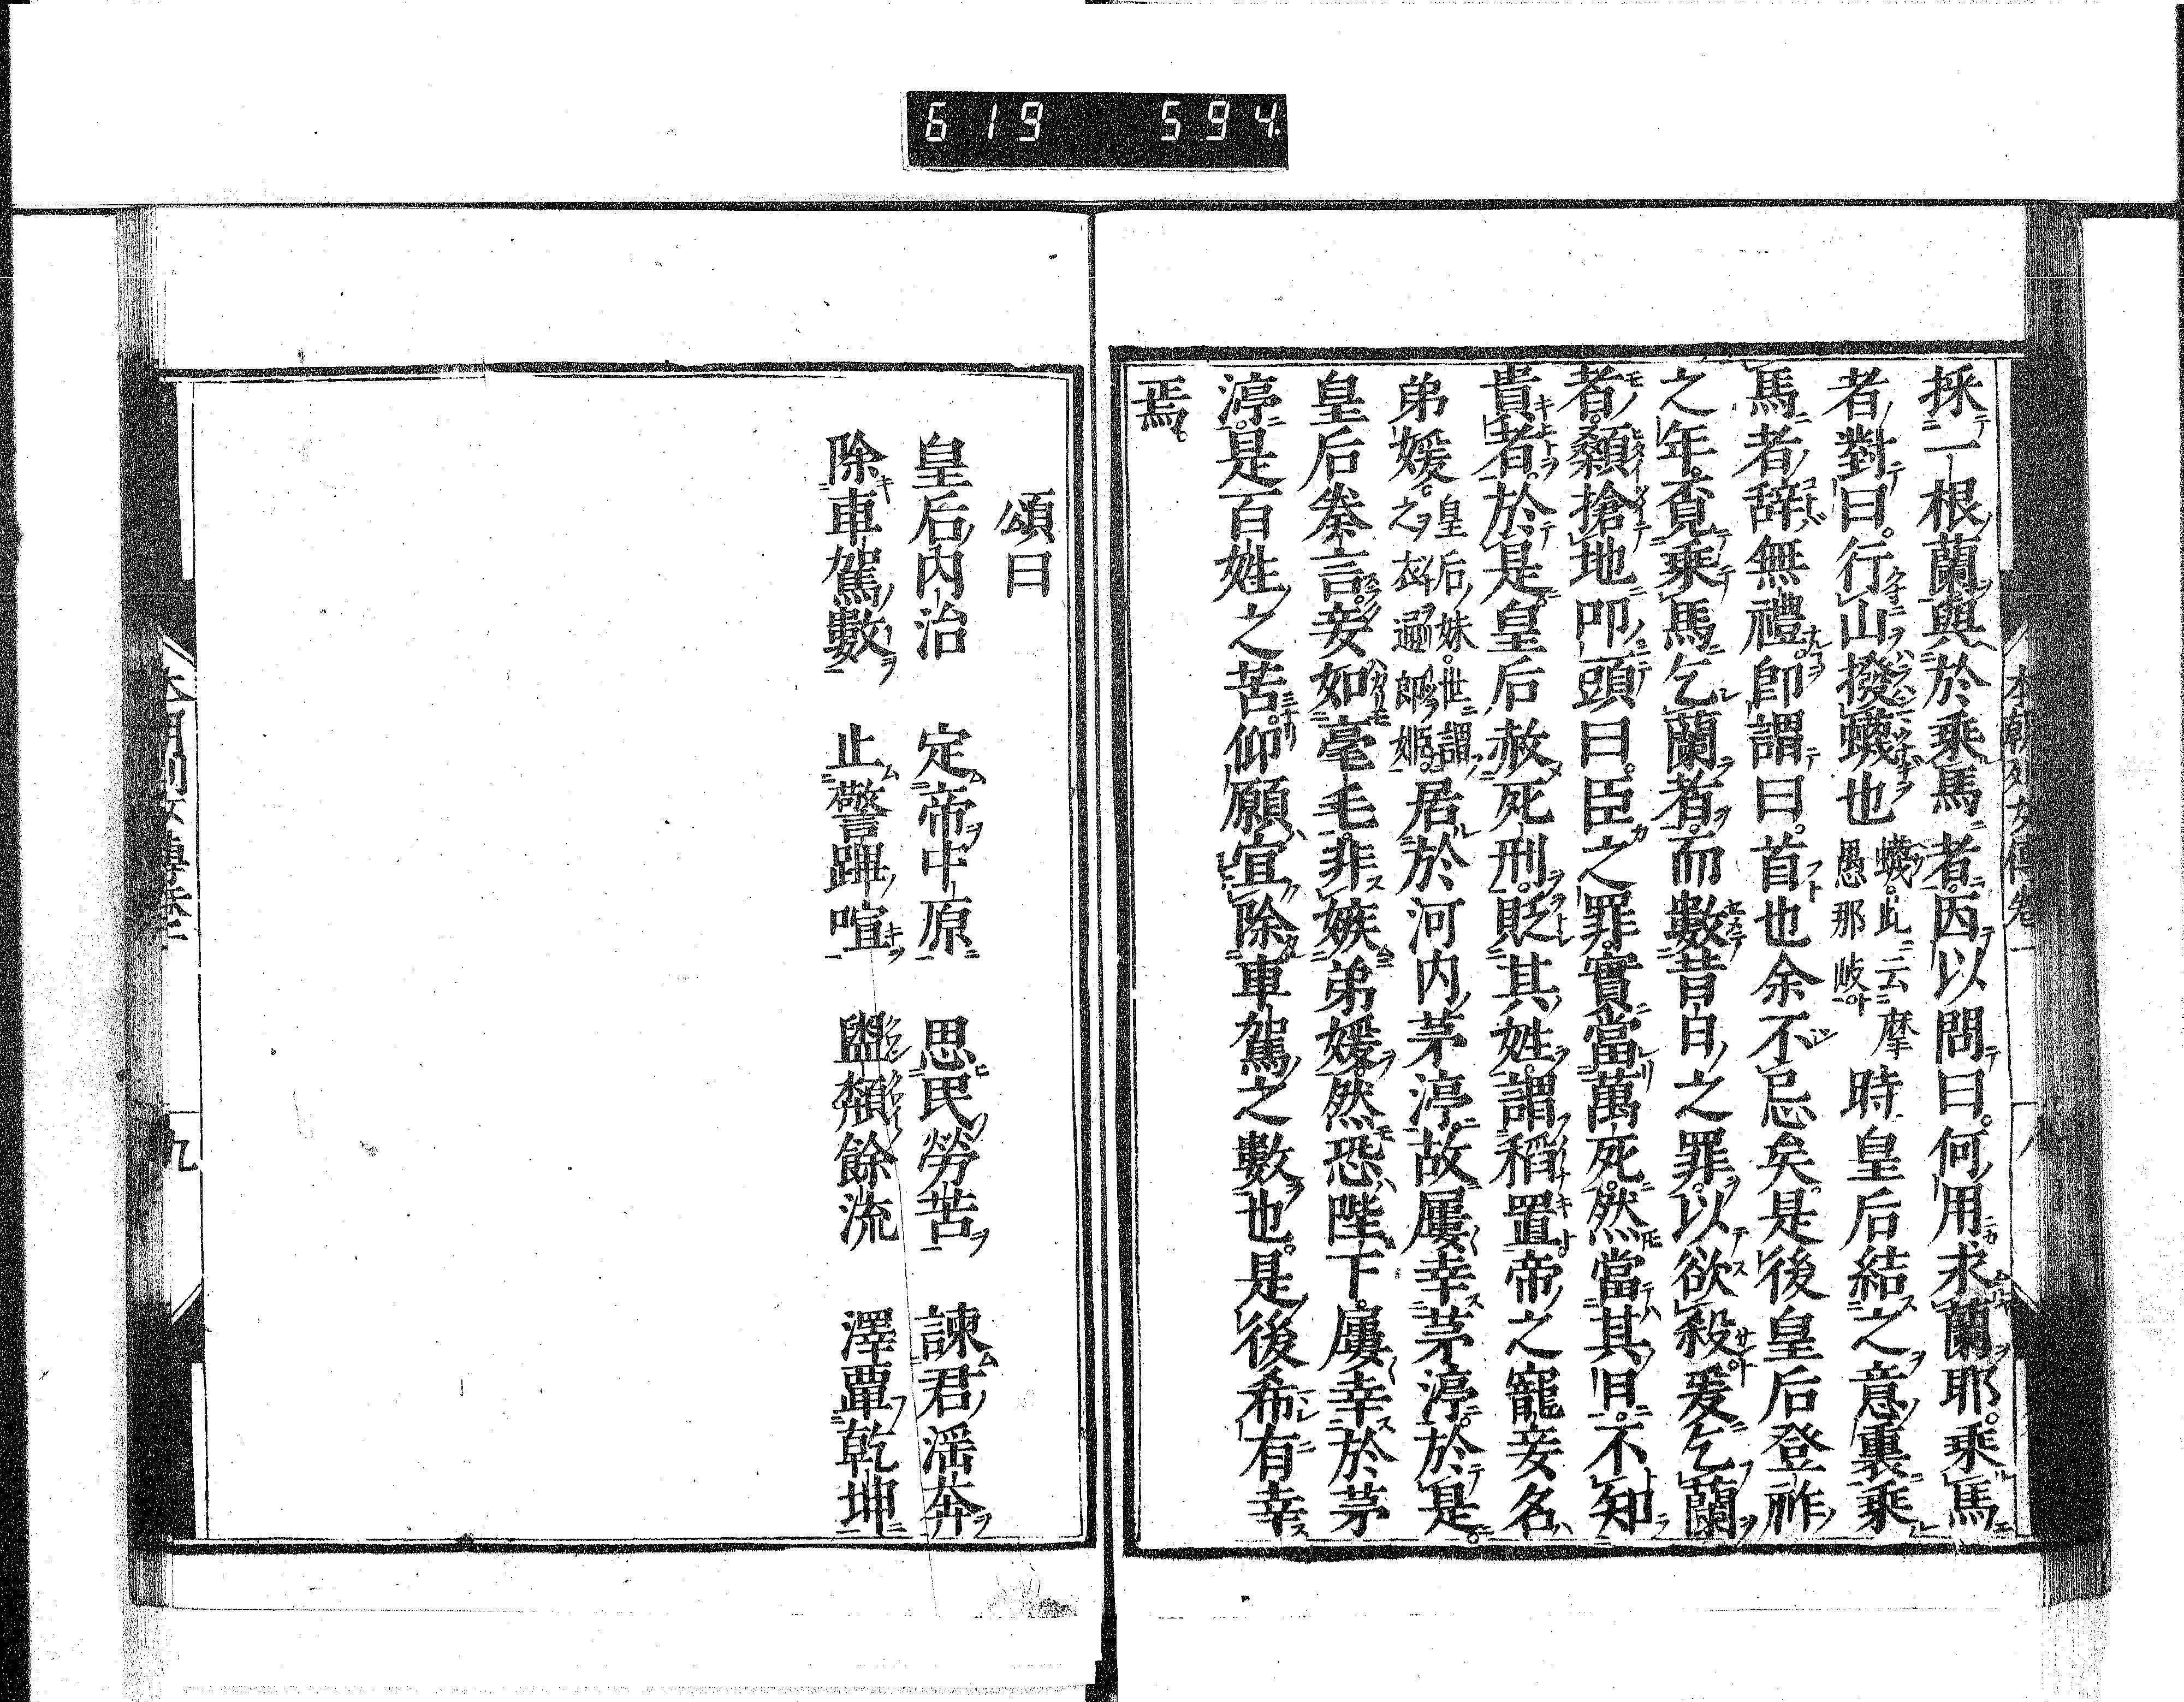 619 594
本朝列女傳卷一
八
採一根蘭與於乘馬者因以問曰何用求蘭耶乘馬
者對曰行山撥蠛也蠛此云摩愚那岐時皇后結之意裏乘
馬者辞無禮即謂曰首也余不忌矣是後皇后登祚
之年覓乘馬乞蘭者而數昔日之罪以欲殺爰乞蘭
者顙搶地叩頭曰臣之罪實當萬死然當其日不知
貴者於是皇后赦死刑貶其姓謂稻置帝之寵妾名
弟媛皇后妹世謂之衣通郎姫居於河内茅渟故屢幸茅渟於是
皇后奏言妾如毫毛非嫉弟媛然恐陛下屢幸於茅
渟是百姓之苦仰願宜除車駕之數也是後希有幸
焉
頌曰
皇后内治 定帝中原 思民勞苦 諫君滛奔
除車駕數 止警蹕喧 盥頮餘流 澤覃乾坤
本朝列女傳卷一
九